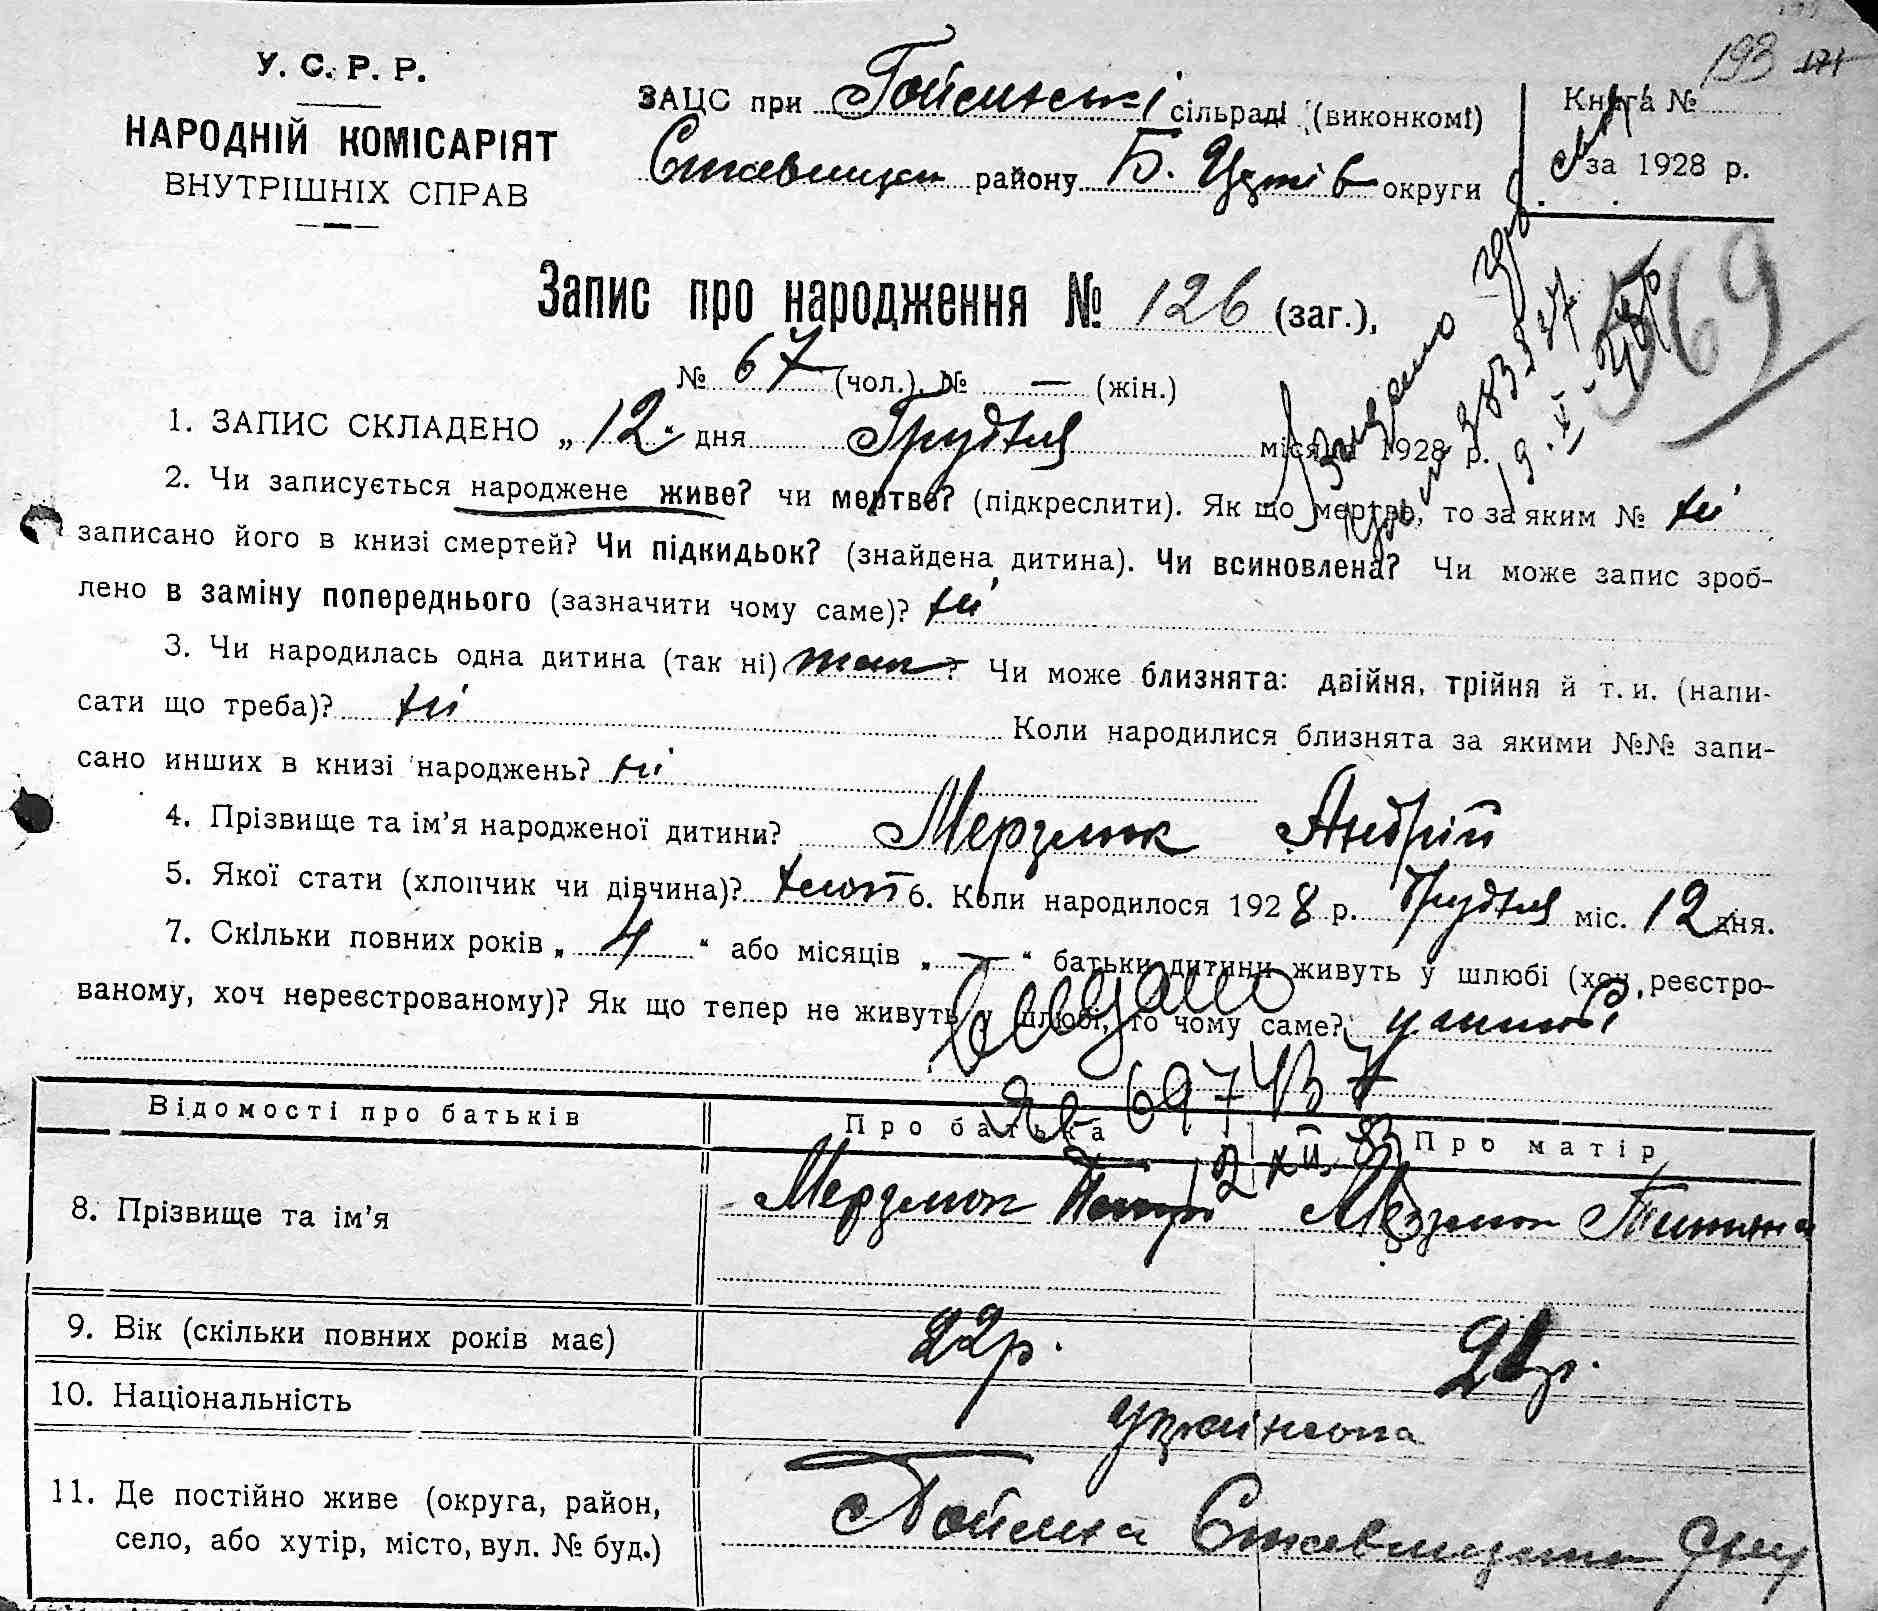 193 171
У. С. Р. Р.
НАРОДНІЙ КОМІСАРІЯТ
ВНУТРІШНІХ СПРАВ
ЗАЦС при Гойсинські сільраді (виконкомі)
Ставищан району Б. Церків округи
Книга №
за 1928 р.
Запис про народження № 126 (заг.),
69
№ 67 (чол.). № — (жін.)
1. ЗАПИС СКЛАДЕНО „ 12 “ дня Грудня місяця 1928 р.
2. Чи записується народжене живе? чи мертве? (підкреслити). Як що мертве, то за яким № ні
записано його в книзі смертей? Чи підкидьок? (знайдена дитина). Чи всиновлена? Чи може запис зроб-
лено в заміну попереднього (зазначити чому саме)? ні
3. Чи народилась одна дитина (так ні) так? Чи може близнята: двійня, трійня й т. и. (напи-
сати що треба)? ні Коли народилися близнята за якими №№ запи-
сано инших в книзі народжень? ні
4. Прізвище та ім’я народженої дитини? Мерзлюк Андрій
5. Якої стати (хлопчик чи дівчина)? хлоп 6. Коли народилося 1928 р. Грудня міс. 12 дня.
7. Скільки повних років „ 4 “ або місяців „ — “ батьки дитини живуть у шлюбі (хоч реєстро-
ваному, хоч нереєстрованому)? Як що тепер не живуть у шлюбі, то чому саме? у шлюбі
697437
Відомості про батьків Про батька Про матір
8. Прізвище та ім’я Мерзлюк Петро Мерзлюк Титяна
9. Вік (скільки повних років має) 22р.
10. Національність українська
11. Де постійно живе (округа, район,
село, або хутір, місто, вул. № буд.)